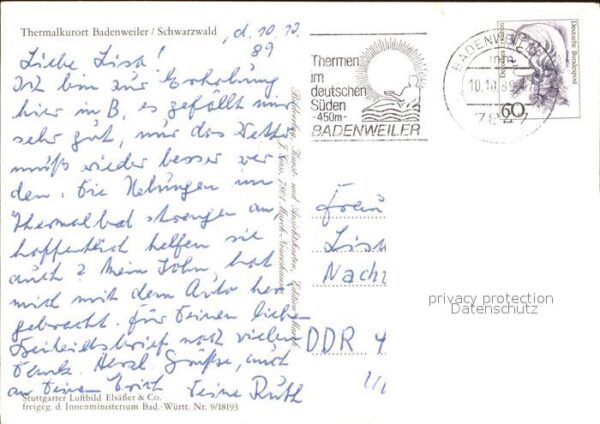 Thermalkurort Badenweiler / Schwarzwald
, d. 10.10.
89
Liebe Lisa!
Ich bin zur Erholung
hier in B, es gefällt mir
sehr gut, nur das Wetter
müßt wieder besser wer
den. Die Übungen im
Thermalbad strengen an
hoffentlich helfen sie
auch? Mein Sohn, hat
mich mit dem Auto her
gebracht. Für Deinen lieben
noch vielen
Dank. Herzl Grüße, auch
an Deinen Erich Deine Ruth
Stuttgarter Luftbild Elsäßer & Co.
freigeg. d. Innenministerium Bad.-Württ. Nr. 9/18193
Thermen
im
deutschen
Süden
-450m-
BADENWEILER
BADENWEILER
mm
10.10.89
7847
Deutsche Bundespost
60
Frau
Lisa
Nach
DDR 4
privacy protection
Datenschutz